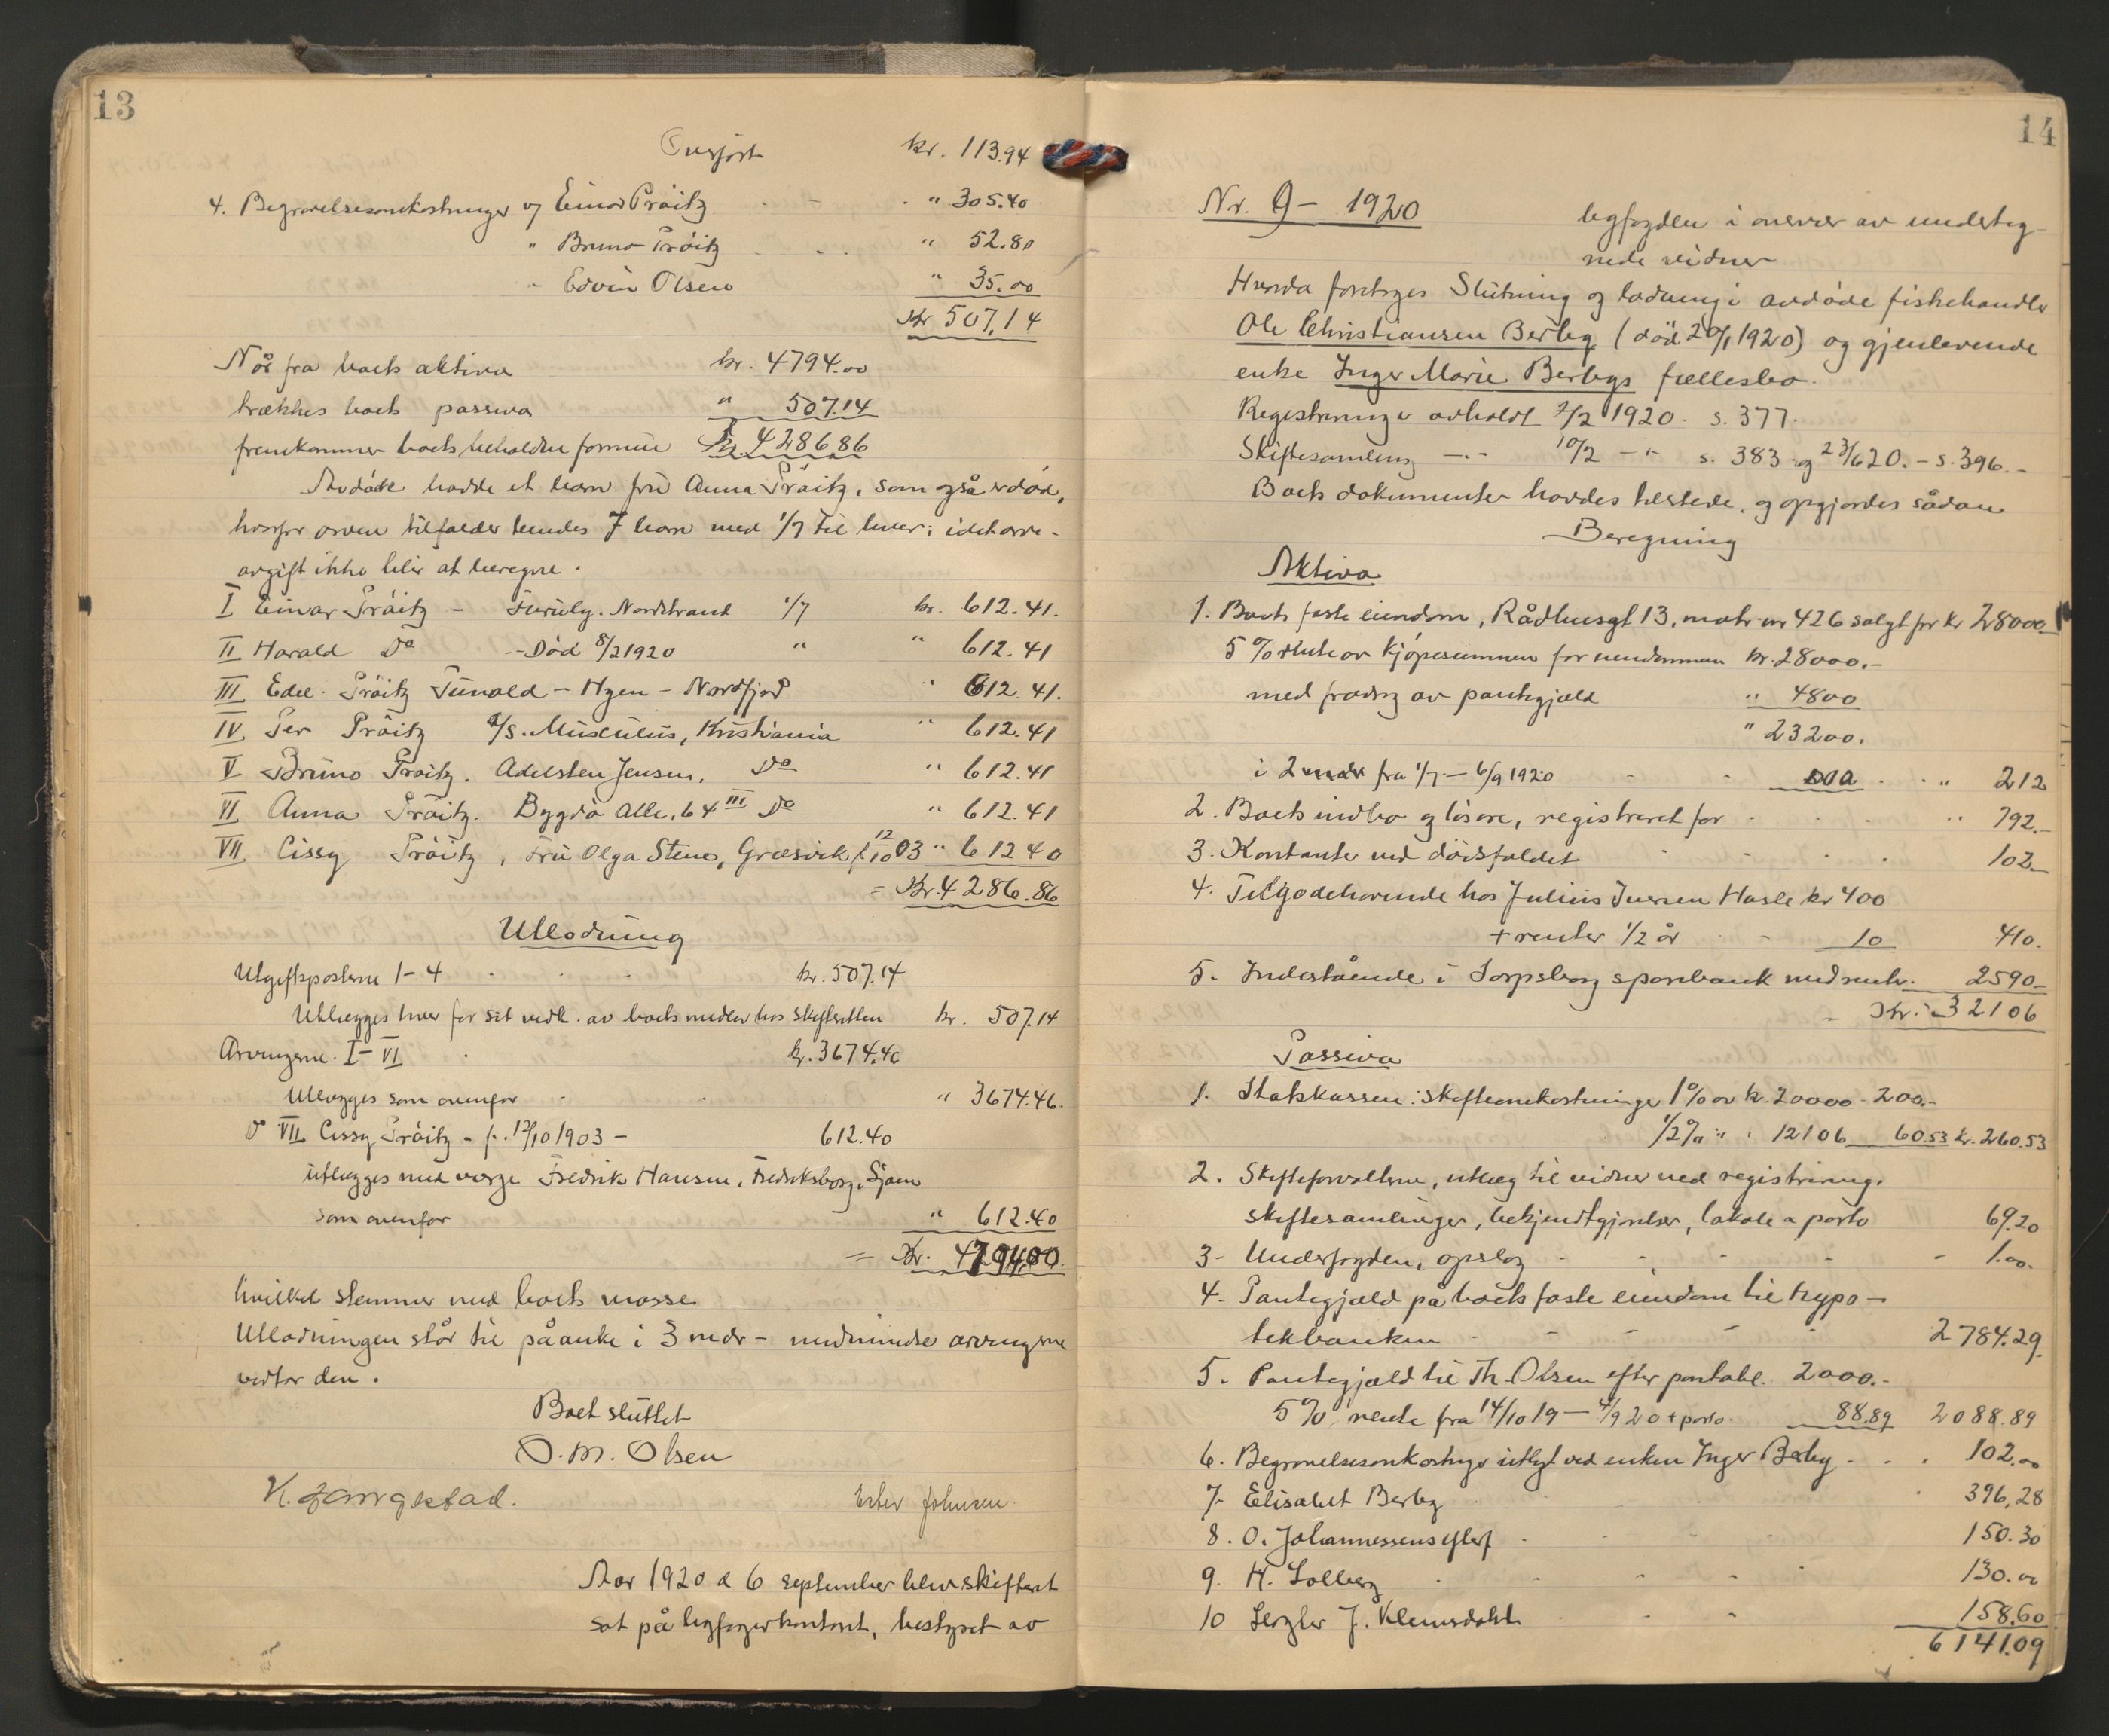 13
Overført kr. 113.94
4. Begravelsesomkostninger v/ Einar Prøitz " 305.40
" Bruno Prøitz " 52.80
" Edvin Olsen " 35.00
Kr 507.14
Når fra boets aktiva kr. 4794.00
trækkes boets passiva " 507.14
fremkommer boets beholdne formue Kr. 4286.86
Avdøde hadde et barn fru Anna Prøitz, som også er død,
hvorfor arven tilfalder hendes 7 barn med 1/7 til hver; idet arve-
avgift ikke blir at beregne.
I Einar Prøitz - Furulg. Nordstrand 1/7 kr. 612.41.
II Harald Do - Død 8/2 1920 " " 612.41
III Edel Prøitz Tunold - Hyen - Nordfjord " 612.41.
IV Per Prøitz A/S. Musculus, Kristiania " 612.41
V Bruno Prøitz. Adelsten Jensen, Do " 612.41
VI Anna Prøitz. Bygdø Alle, 64 III Do " 612.41
VII Cissy Prøitz, Fru Olga Stene, Græsvik f. 12/10 03 " 612 40
= Kr. 4286.86
Utlodning
Utgiftsposterne 1-4 kr. 507.14
Utlægges hver for sit vedk. av boets midler hos skifteretten kr. 507.14
Arvingerne I-VI kr. 3674.46
Utlægges som ovenfor " 3674.46.
Do VII Cissy Prøitz - f. 12/10 1903 - 612.40
utlægges med verge Fredrik Hansen, Fredriksborg, Sjøen
som ovenfor " 612.40
= Kr. 4794.00.
hvilket stemmer med boets masse
Utlodningen står til påanke i 3 mdr - medmindre arvingerne
vedtar den.
Boet sluttet
O. M. Olsen
K. Langestad. Ester Johnsen.
Aar 1920 d 6 september blev skifteret
sat på lensfogdkontoret, bestyret av
14
Nr. 9 - 1920
legfogden i overvær av underteg-
nede vidner
Hvorda foretoges Slutning og lodning i avdøde fiskehandler
Ole Christiansen Berbys (død 20/1 1920) og gjenlevende
enke Inger Marie Berbys fællesbo.
Registrering er avholdt 2/2 1920. s. 377.
Skiftesamling -"- 10/2 -"- s. 383 og 23/6 20. - s. 396. -
Boets dokumenter havdes tilstede, og opgjordes sådan
Beregning
Aktiva
1. Boets faste eiendom, Rådhusgt 13, matr. nr 426 solgt for kr 28000.-
5 % rente av kjøpesummen for eiendommen kr. 28000.-
med fradrag av pantegjæld " 4800
" 23200.
i 2 mndr fra 1/7 - 6/9 1920 " 212
2. Boets indbo og løsøre, registreret for " 792.-
3. Kontanter ved dødsfaldet 102.-
4. Tilgodehavende hos Julius Iversen Hasle kr 400
+ renter 1/2 år 10 410.
5. Indestående i Sarpsborg sparebank med rente. 2590.-
= Kr. 32106
Passiva
1. Statskassen: Skifteomkostninger 1% av kr. 20000 - 200.-
1/2% " " 12106 60.53 kr. 260.53
2. Skifteforvalteren, utlæg til vidner ved registrering,
skiftesamlinger, bekjendtgjørelser, lokale a porto 69.20
3- Underfogden, opslag - 1.00.
4- Pantegjæld på boets faste eiendom til hypo-
tekbanken 2784.29.
5. Pantegjæld til Th. Olsen efter pantobl. 2000.-
5% rente fra 14/10 19 - 4/9 20 + porto 88.89 2088.89
6. Begravelsesomkostninger utlagt ved enken Inger Berby 102.00
7. Elisabet Berby 396,28
8. O. Johannessens efterf 150.30
9. H. Solberg 130.00
10 J. Klemsdahl 158.60
6141.09